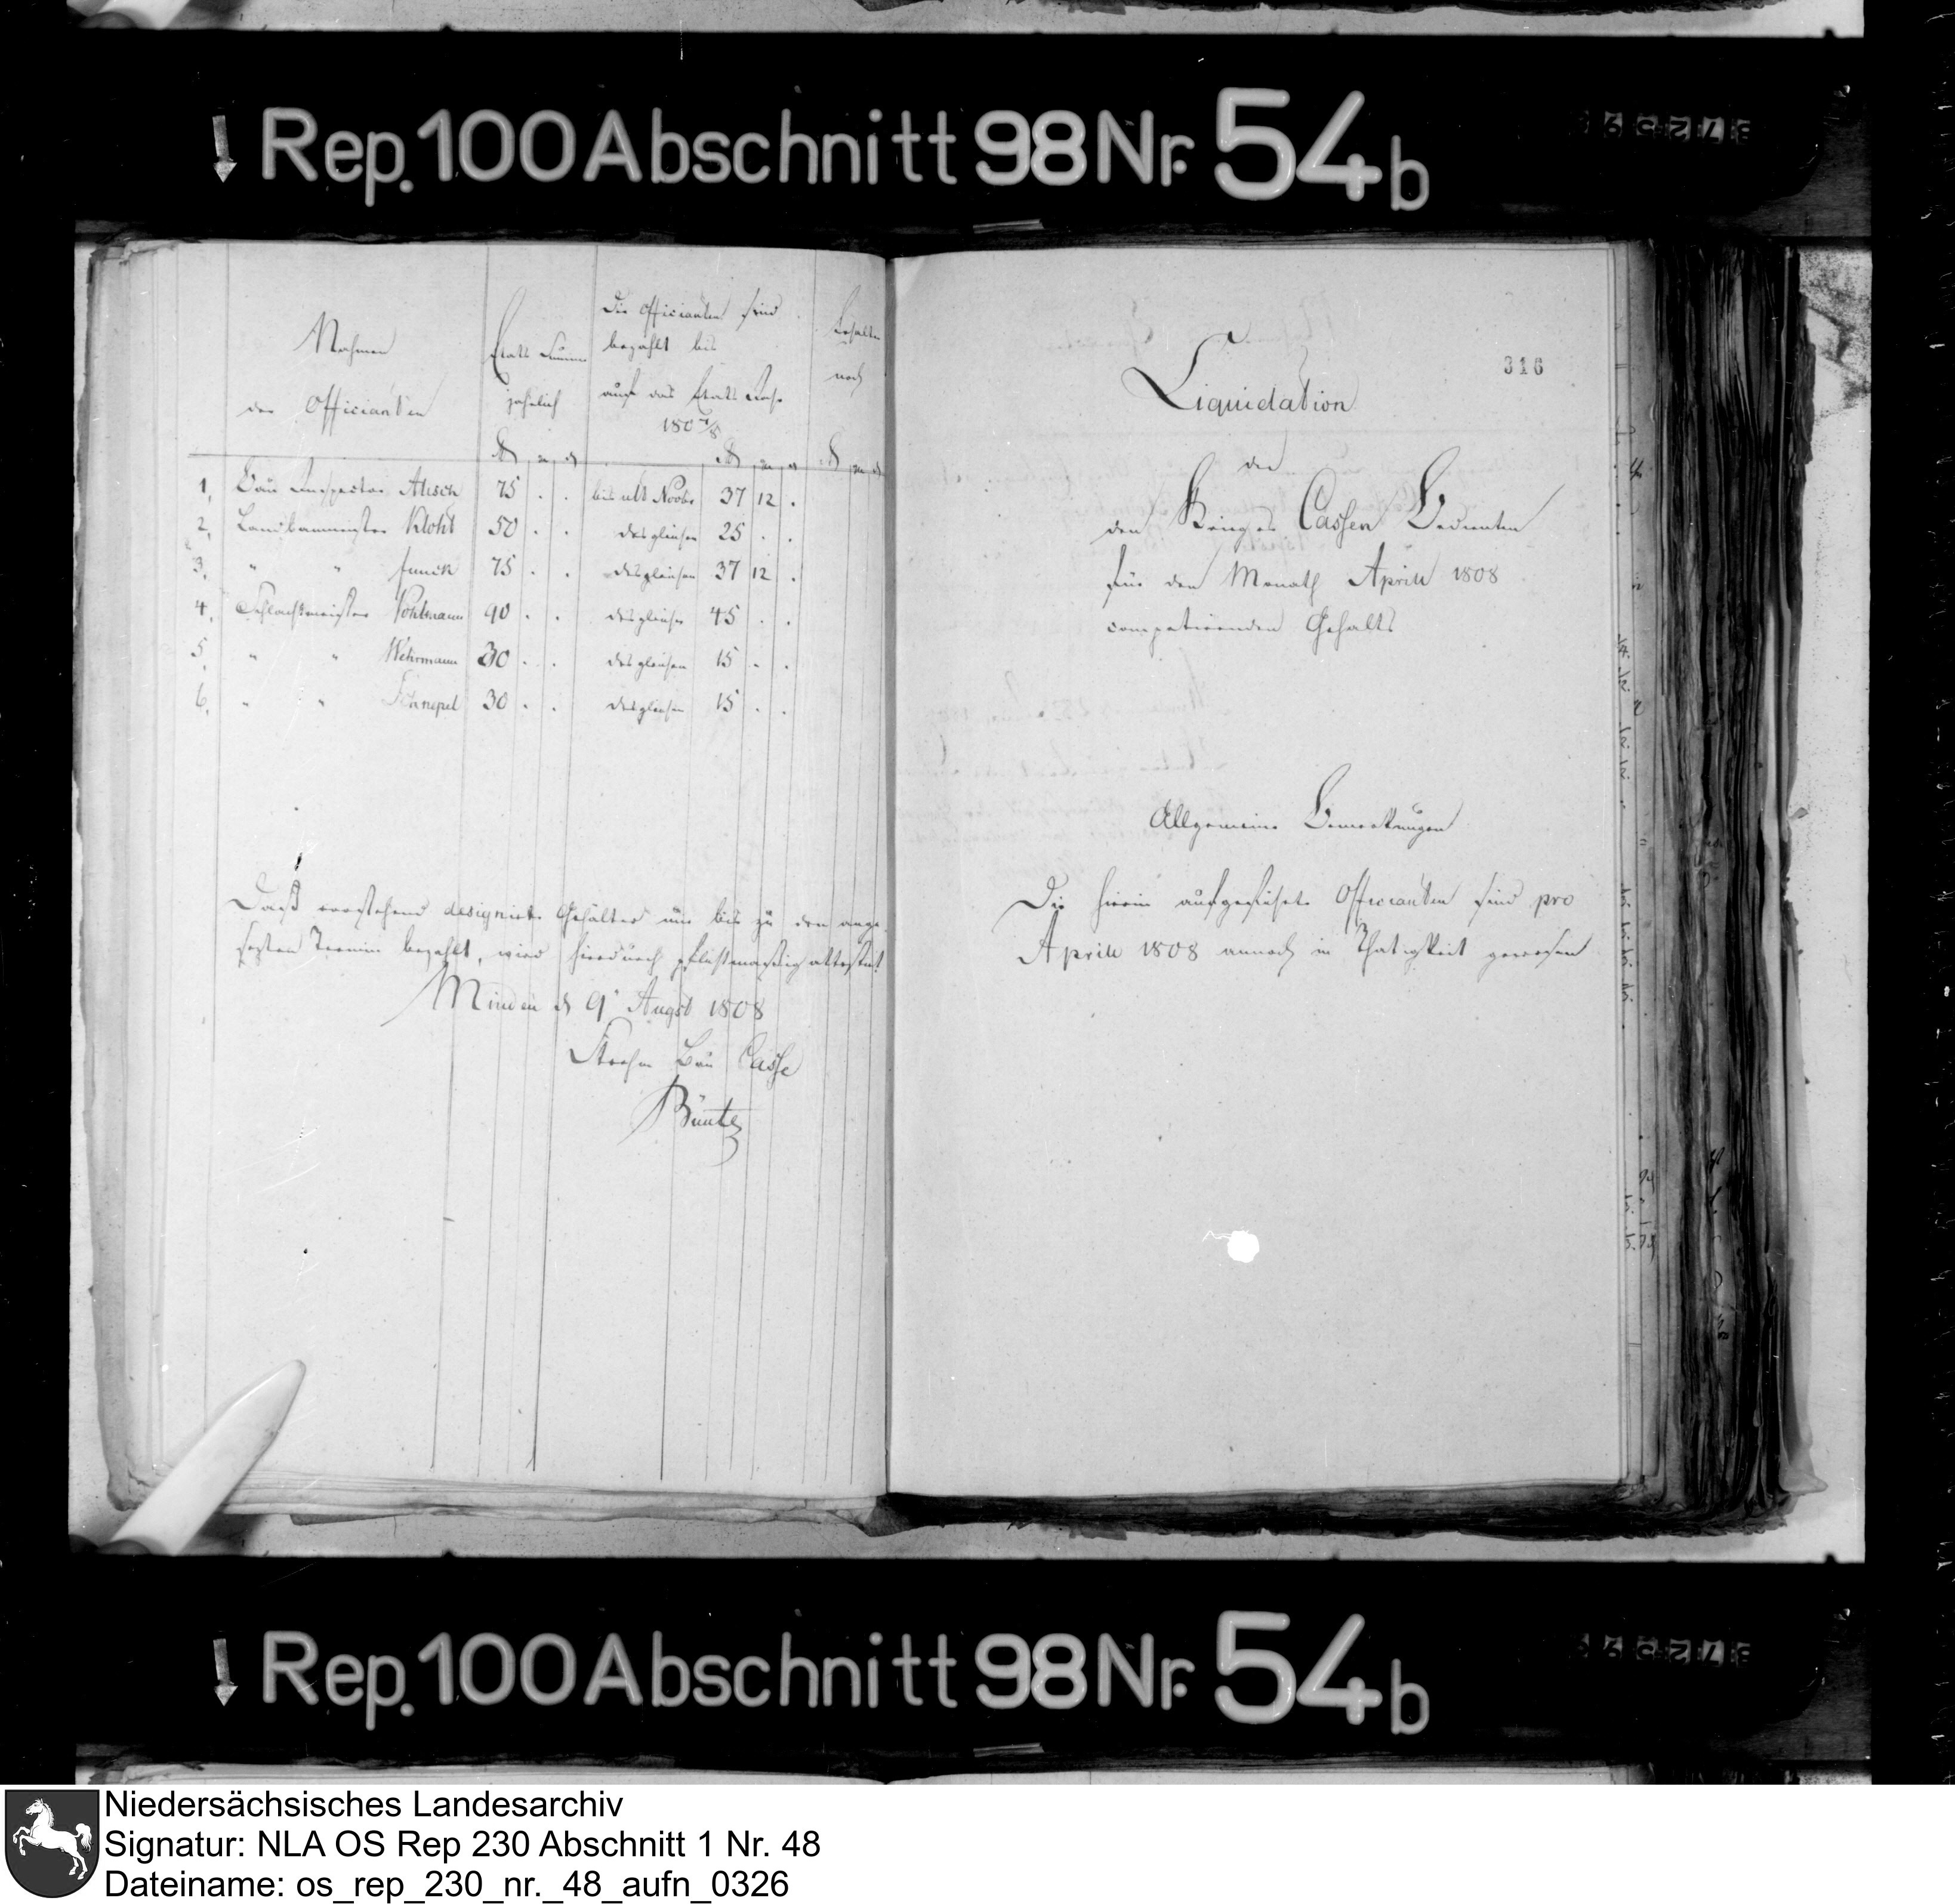 Rep. 100 Abschnitt 98 Nr. 54b
Nahmen
der Officianten
Etats Summe
jährlich
Die Officianten sind
bezahlt bis
auf das Etats Jahr
180 7/8
noch
1, Bau Inspector Alisch 75 . . bis ult Novbr 37 12 .
2, Landbaumeister Kloht 50 . . desgleichen 25 . .
3, " " Funck 75 . . desgleichen 37 12 .
4, Schlachtmeister Pohlmann 90 . . desgleichen 45 . .
5, " " Wehrmann 30 . . desgleichen 15 . .
6, " " Schnepel 30 . . desgleichen 15 . .
Daß vorstehend designirte Gehälter nur bis zu den ange-
sezten Termin bezahlt, wird hierdurch pflichtmäßig attestirt
Minden d 9' Augst 1808
Strohm Bau Casse
Bünte
316
Liquidation
der
den Krieges Cassen Bedienten
für den Monath Aprill 1808
competirenden Gehalts
Allgemeine Bemerkungen
Die hierin aufgeführte Officianten sind pro
Aprill 1808 annoch in Thätigkeit gewesen
Rep. 100 Abschnitt 98 Nr. 54b
Niedersächsisches Landesarchiv
Signatur: NLA OS Rep 230 Abschnitt 1 Nr. 48
Dateiname: os_rep_230_nr._48_aufn_0326